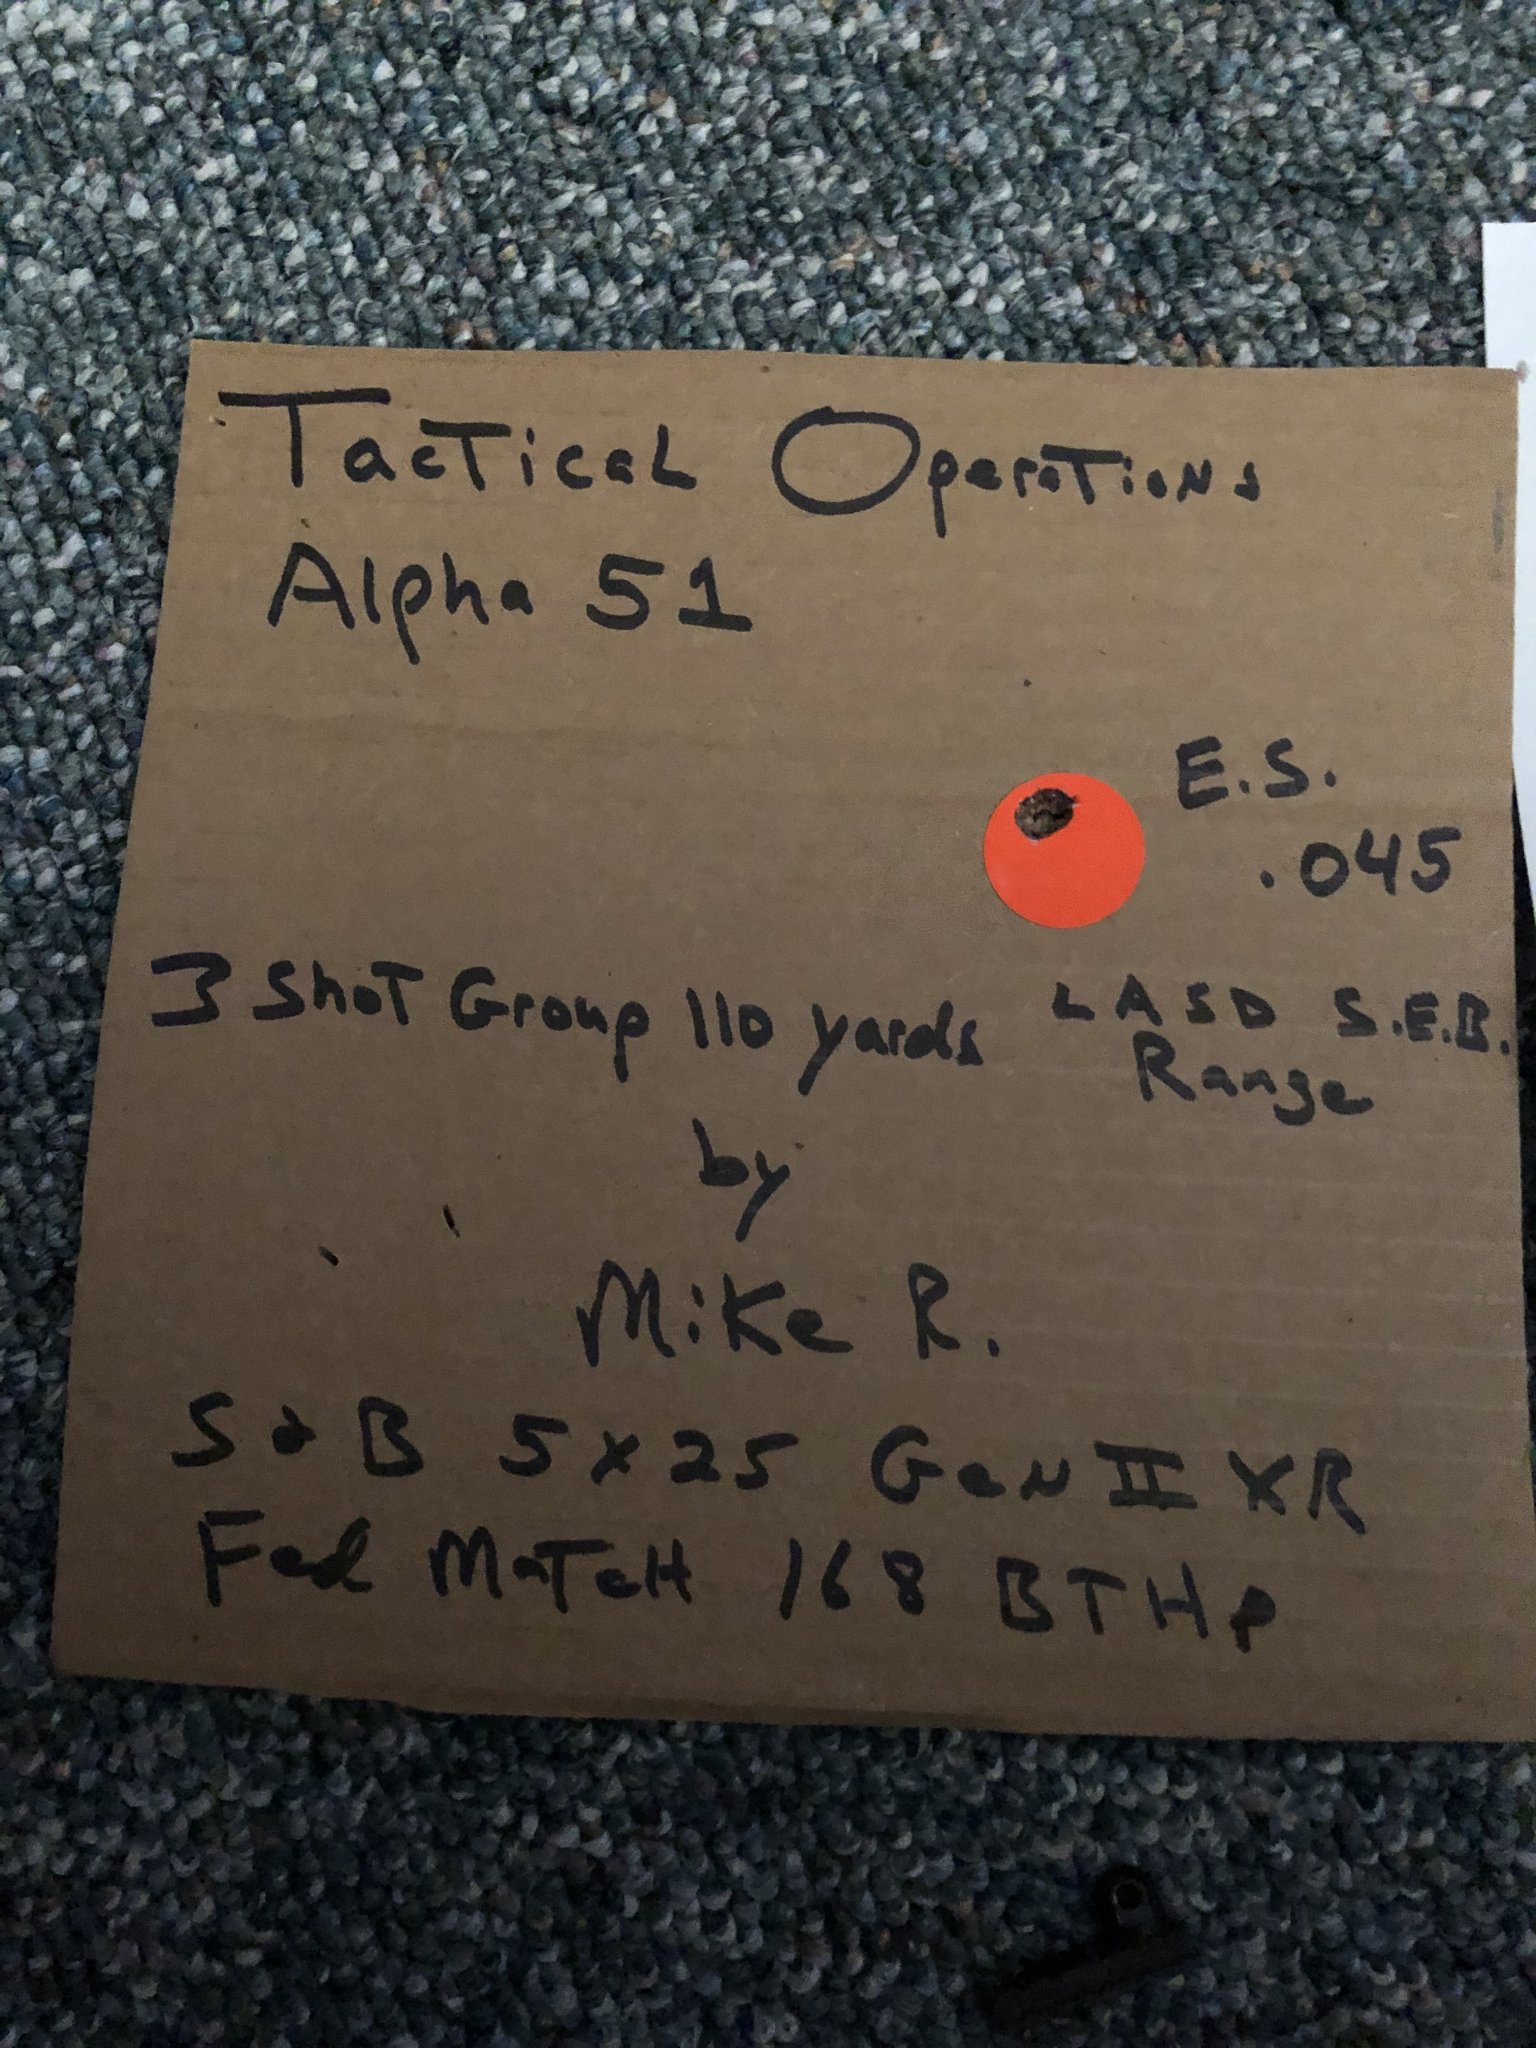 Tactical Operations
Alpha 51
E.S.
.045
3 Shot Group 110 yards
LASD S.E.B.
Range
by
Mike R.
S & B 5x25 Gen II XR
Fed Match 168 BTHP